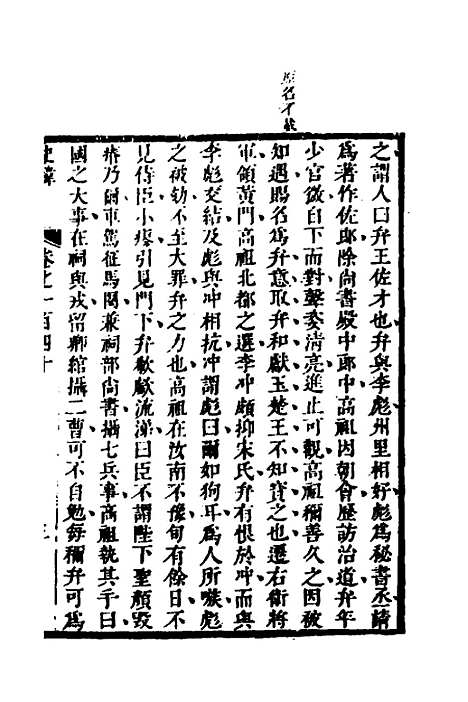 原名才載
之謂人曰弁王佐才也弁與李彪州里相好彪為秘書丞請
為著作佐郎除尚書殿中郎中高祖因朝會歷訪治道弁年
少官微自下而對聲姿清亮進止可觀高祖稱善久之因被
知遇賜名為弁意取弁和獻玉楚王不知寶之也遷右衛將
軍領黃門高祖北都之選李冲頗抑宋氏弁有恨於冲而與
李彪交結及彪與冲相抗冲謂彪曰爾如狗耳為人所嗾彪
之被劾不至大罪弁之力也高祖在汝南不豫旬有餘日不
見侍臣小瘳引見門下弁歔欷流涕曰臣不謂陛下聖顏毀
瘠乃爾車駕征馬圈兼祠部尚書攝七兵事高祖執其手曰
國之大事在祠與戎留卿綰攝二曹可不自勉每稱弁可為
史緯
卷之一百四十
三